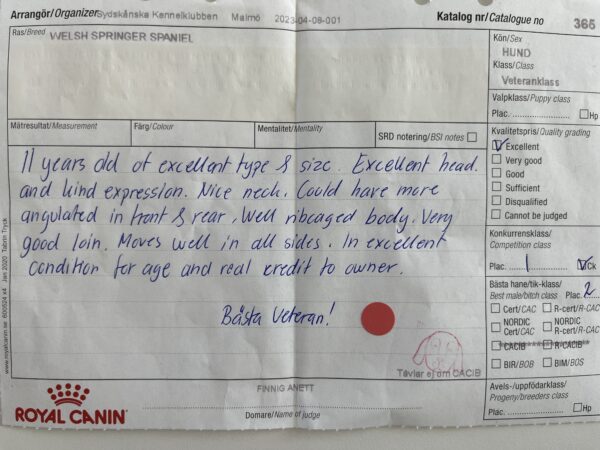 Arrangör/Organizer Sydskånska Kennelklubben Malmö 2023-04-08-001
Katalog nr/Catalogue no 365
Ras/Breed WELSH SPRINGER SPANIEL
Kön/Sex
HUND
Klass/Class
Veteranklass
Valpklass/Puppy class
Plac. Hp
Mätresultat/Measurement Färg/Colour Mentalitet/Mentality SRD notering/BSI notes
Kvalitetspris/Quality grading
Excellent
Very good
Good
Sufficient
Disqualified
Cannot be judged
11 years old of excellent type & size. Excellent head.
and kind expression. Nice neck. Could have more
angulated in front & rear. Well ribcaged body. Very
good loin. Moves well in all sides. In excellent
condition for age and real credit to owner.
Bästa Veteran!
Konkurrensklass/
Competition class
Plac. 1 Ck
Bästa hane/tik-klass/
Best male/bitch class Plac. 2
Cert/CAC R-cert/R-CAC
NORDIC Cert/CAC NORDIC R-cert/R-CAC
CACIB R-CACIB
BIR/BOB BIM/BOS
Tävlar ej om CACIB
Avels-/uppfödarklass/
Progeny/breeders class
Plac. Hp
FINNIG ANETT
Domare/Name of judge
ROYAL CANIN
www.royalcanin.se 600524 x4 Jan 2020 Tabim Tryck